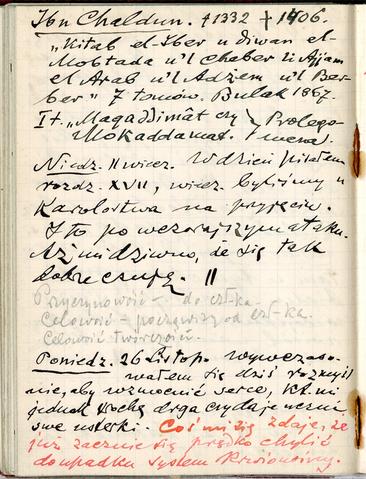 Ibn Chaldun. †1332 † 1406.
„Kitab el-Iber u diwan el-
Mobtada u'l chaber li Ajjam
el Arab u'l Adżem u'l Ber-
ber" 7 tomów. Bulak 1867.
I t. „Magaddimât czy Prolego-
Mokaddamat. mena
Niedz. II wiecz. W dzień pisałem
rozdz. XVII, wiecz. byliśmy u
Karolostwa na przyjęciu.
I to po wczorajszym ataku.
Aż mi dziwno, że się tak
dobrze czuję. ||
Przyczynowość – do czł-ka.
Celowość – począwszy od czł-ka.
Celowość twórczości.
Poniedz. 26 Listop. Wywczaso-
wałem się dziś rozmyśl
nie, aby wzmocnić serce, kt. mi
jednak trochę drga czy daje
swe usterki. Coś mi się zdaje, że
już zacznie się prędko chylić
do upadku system